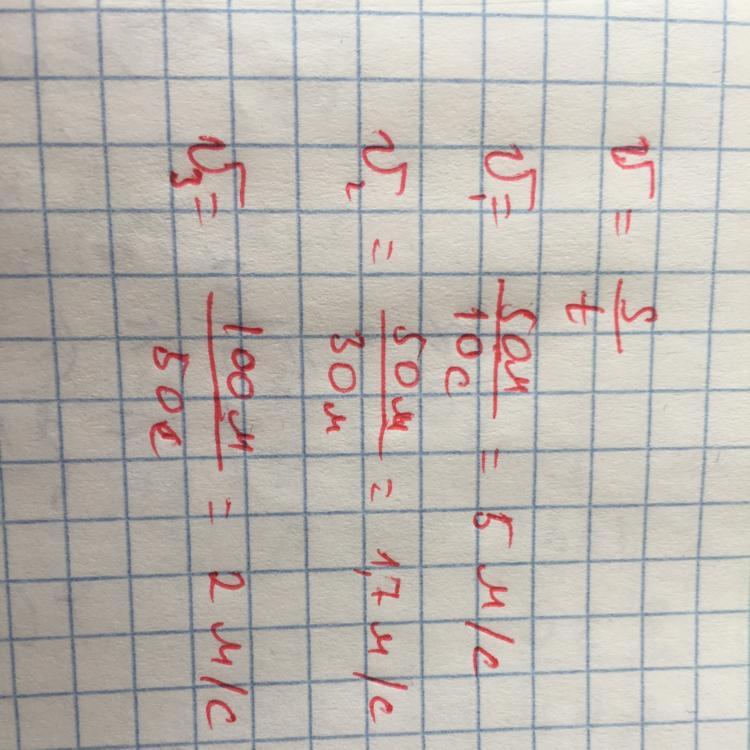 v = s/t
v₁ = 50м/10с = 5 м/с
v₂ = 50м/30м = 1,7 м/с
v₃ = 100м/50с = 2 м/с